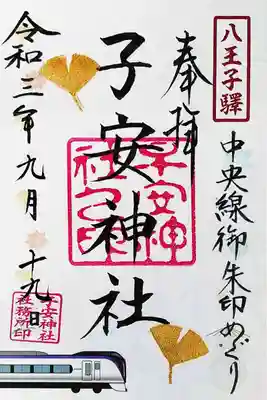 八王子驛
中央線御朱印めぐり
奉拝
子安神社
子安神社之印
令和三年九月十九日
子安神社
社務所印